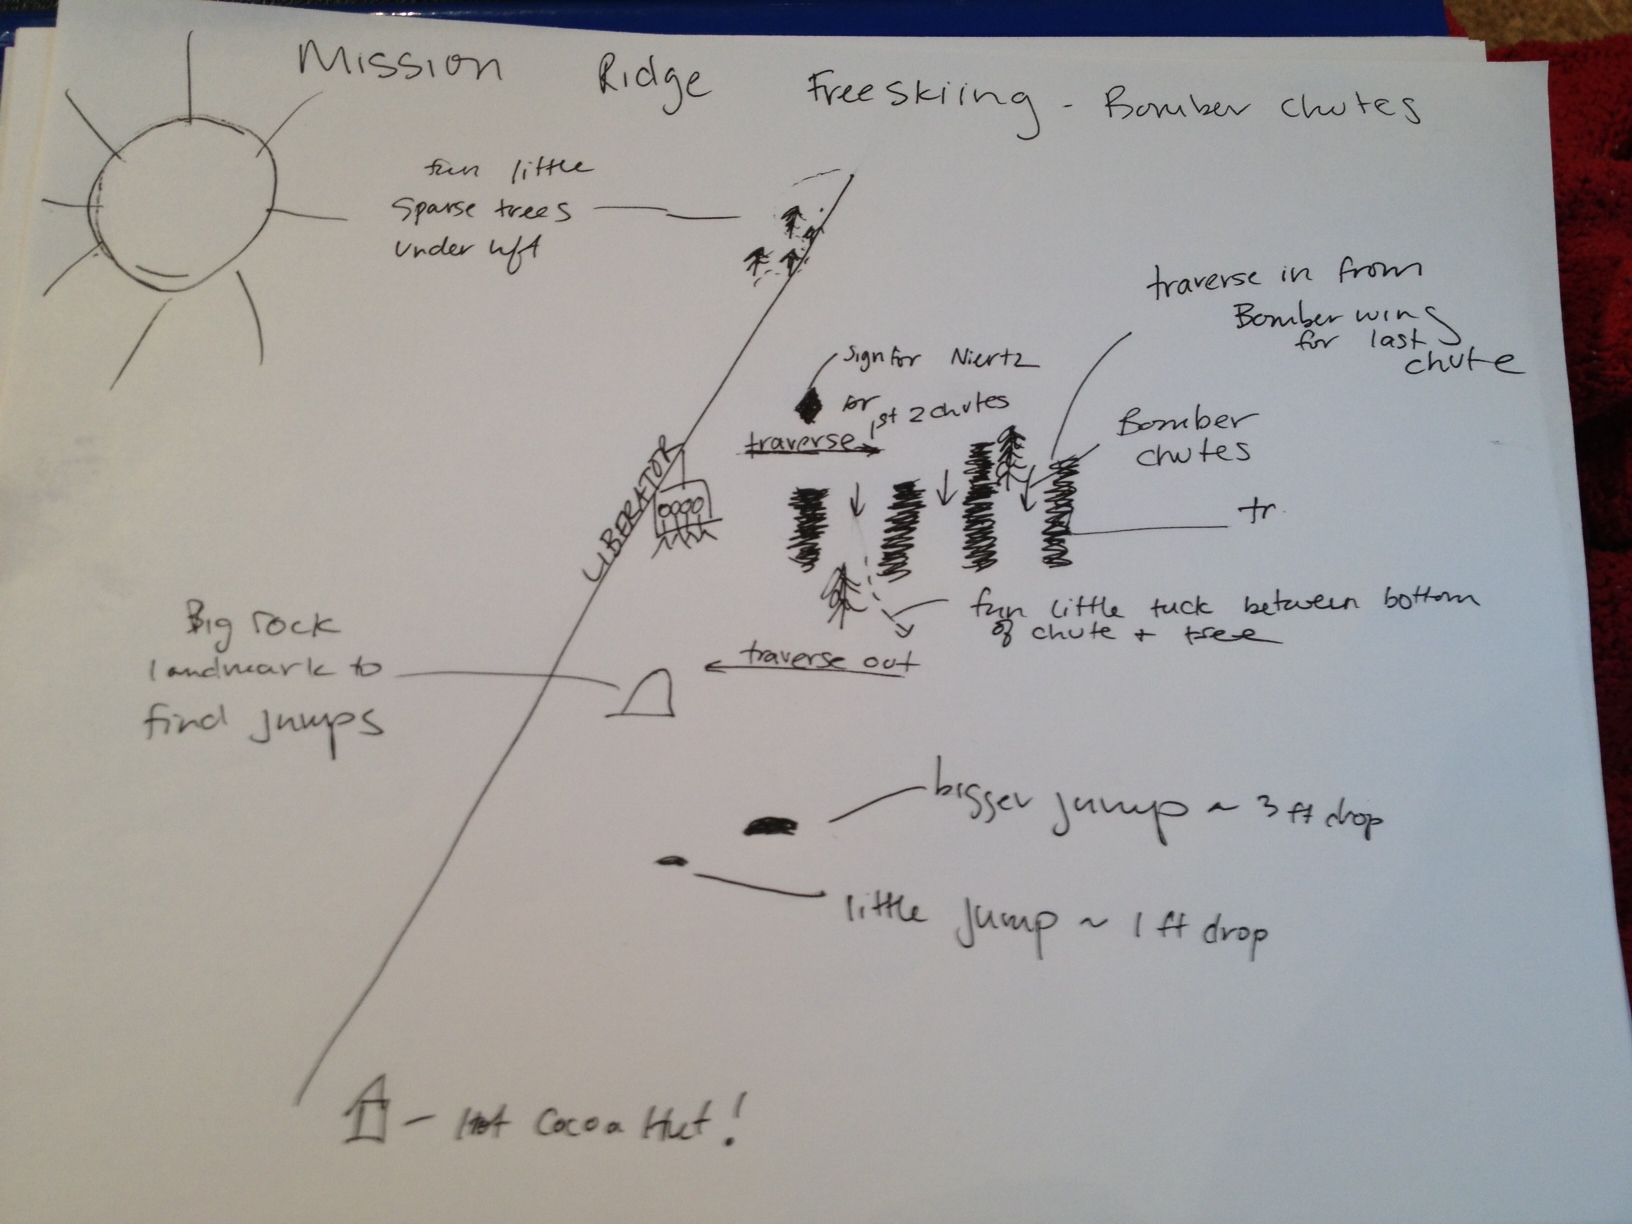 Mission Ridge Freeskiing - Bomber chutes
fun little
sparse trees
under lift
traverse in from
Bomber wing
for last
chute
sign for Niertz
for
1st 2 chutes
traverse
Bomber
chutes
LIBERATOR
tr.
fun little tuck between bottom
of chute + tree
traverse out
Big rock
landmark to
find jumps
bigger jump ~ 3 ft drop
little jump ~ 1 ft drop
- Hot Cocoa Hut!